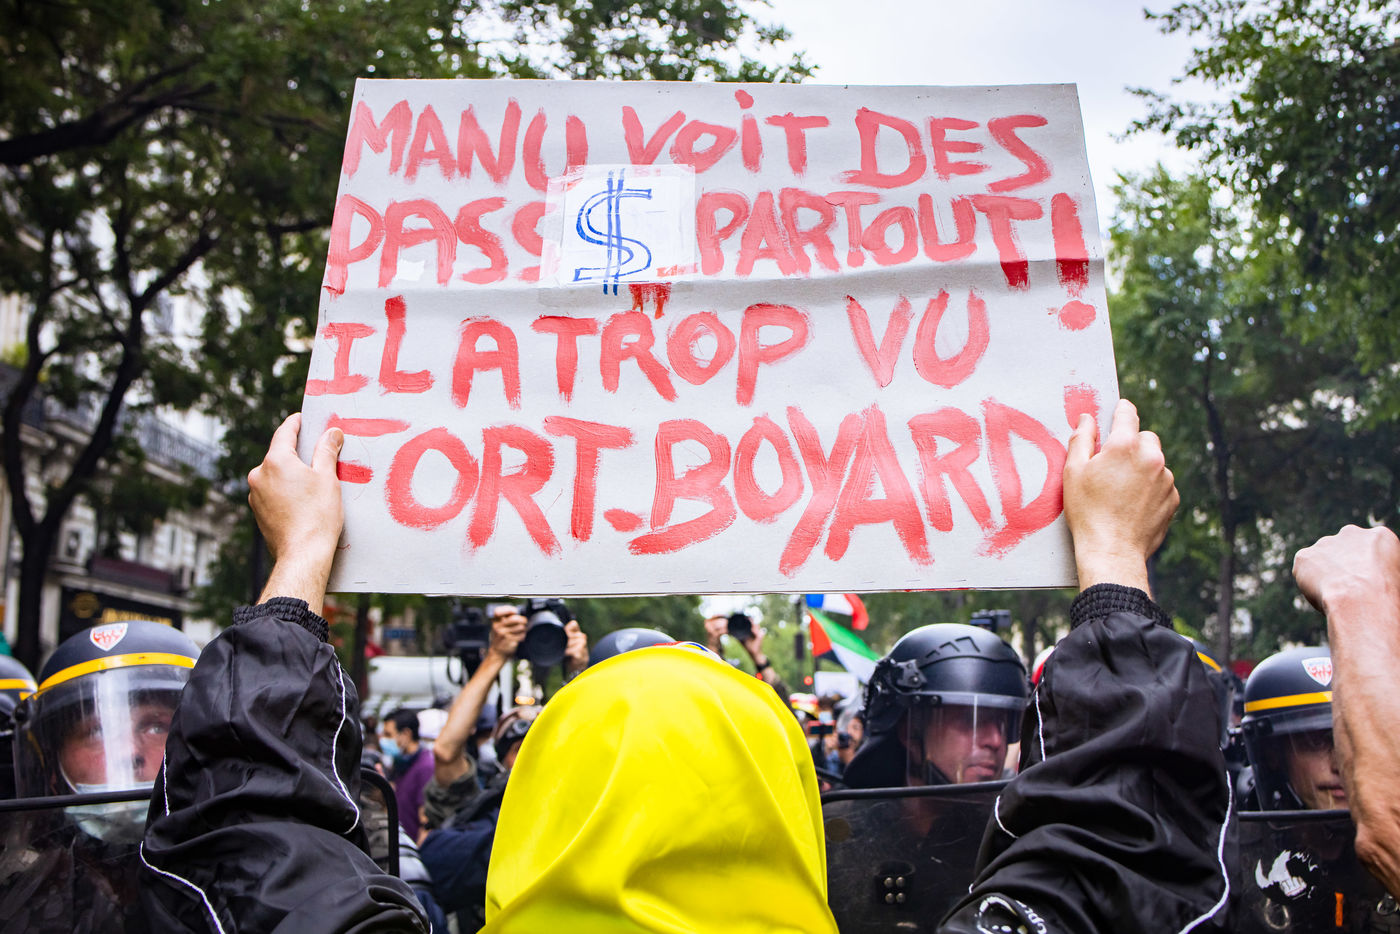 MANU VOiT DES
PASS$ PARTOUT!
IL A TROP VU
FORT-BOYARD!